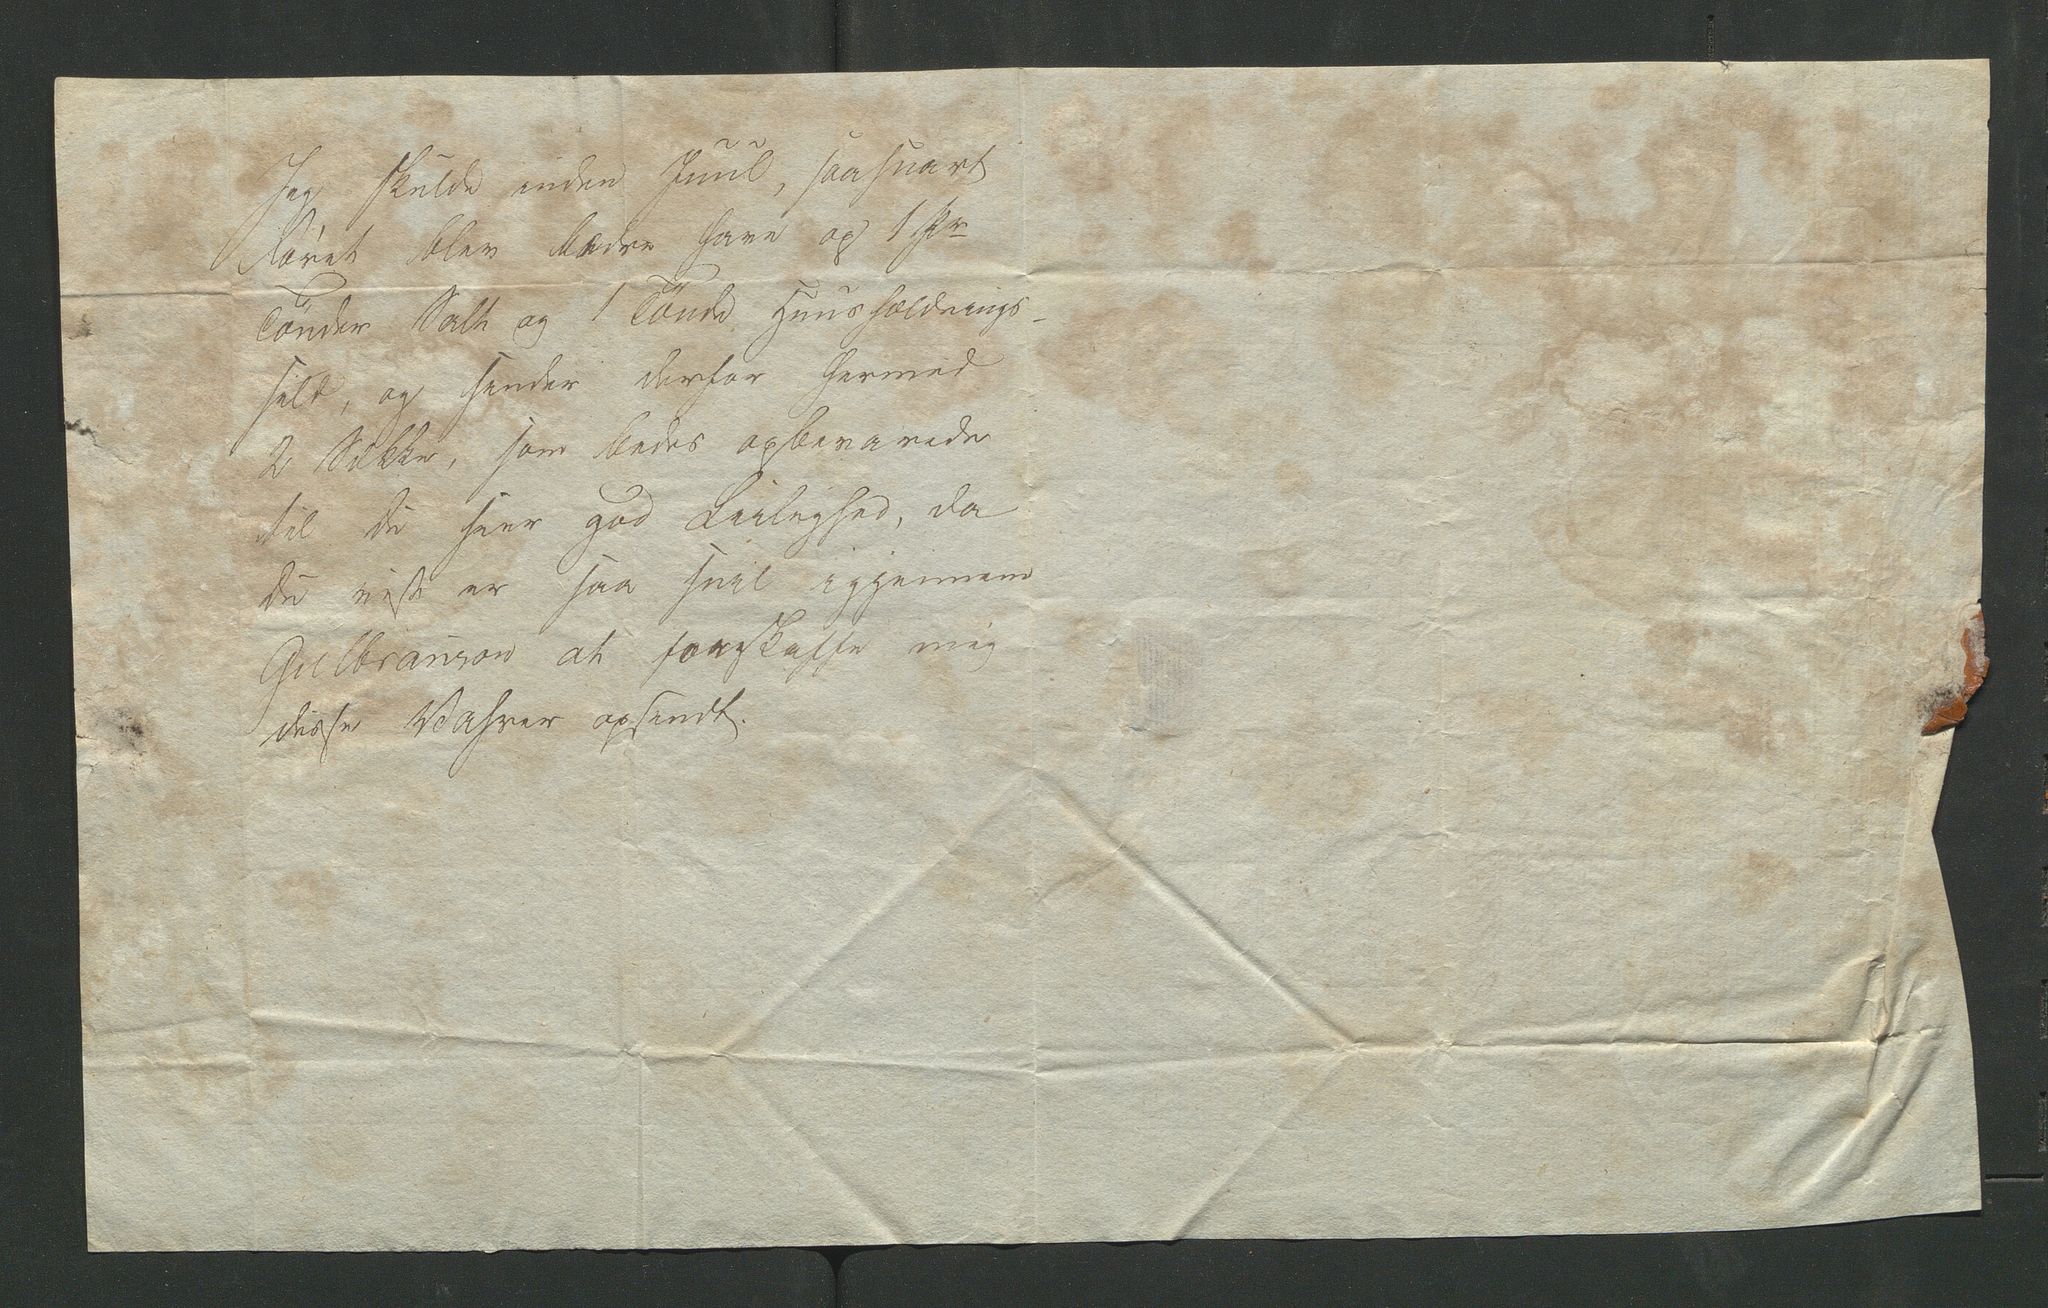 Jeg skulde inden Juul, saasnart
Föret blev bedre have op 1 Pr
Tönder Salt og 1 Tönde Huusholdnings-
sild, og sender derfor hermed
2 Sække, som bedes opbevarede
til du faaer god Leilighed, da
du vist er saa snil igjennem
Gulbranson at forskaffe mig
disse Vahrer opsendt.